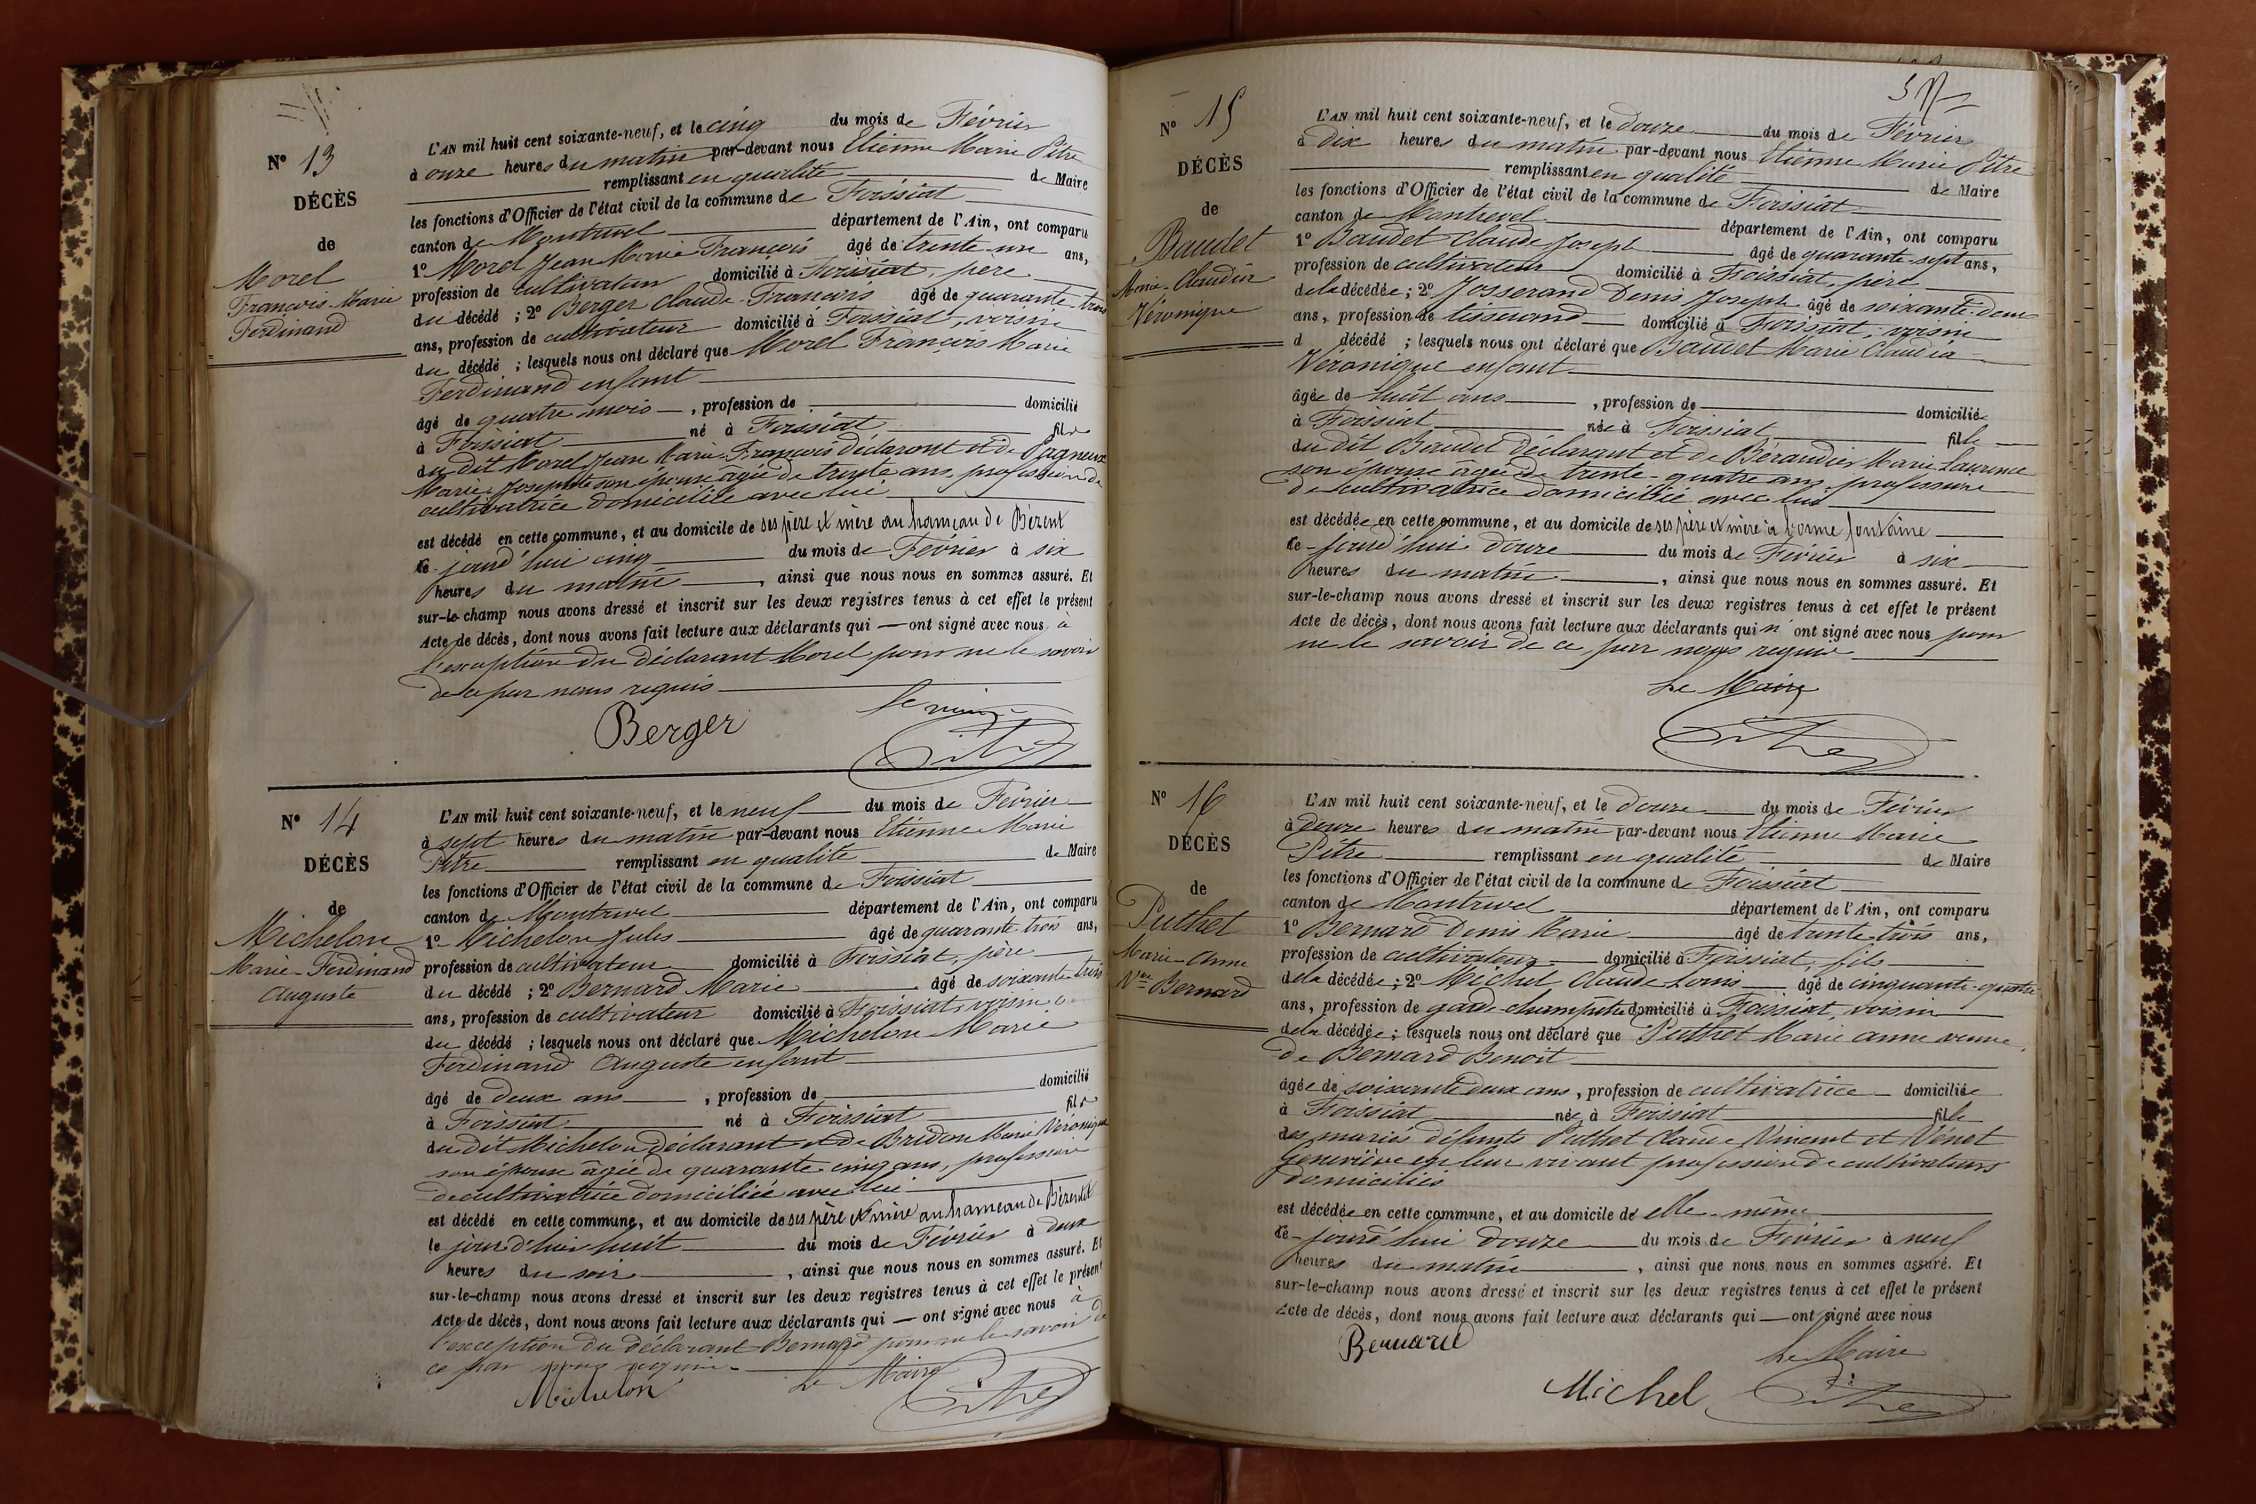 N° 13
DÉCÈS
de
Morel
François-Marie
Ferdinand
L'AN mil huit cent soixante-neuf, et le cinq du mois de Février
à onze heures du matin par-devant nous Etienne Marie Pitre
remplissant en qualité de Maire
les fonctions d'Officier de l'état civil de la commune de Foissiat
canton de Montrevel département de l'Ain, ont comparu
1° Morel Jean Marie François âgé de trente un ans,
profession de cultivateur domicilié à Foissiat, père
du décédé ; 2° Berger Claude-François âgé de quarante-trois
ans, profession de cultivateur domicilié à Foissiat, voisin
du décédé ; lesquels nous ont déclaré que Morel François Marie
Ferdinand enfant
âgé de quatre mois , profession de domicilié
à Foissiat né à Foissiat fils
du dit Morel Jean Marie-François déclarant et de Pagneux
Marie-Josephte son épouse âgée de trente ans, profession de
cultivatrice domiciliée avec lui
est décédé en cette commune, et au domicile de ses père et mère au hameau de Bézent
le jourd'hui cinq du mois de Février à six
heures du matin , ainsi que nous nous en sommes assuré. Et
sur-le-champ nous avons dressé et inscrit sur les deux registres tenus à cet effet le présent
Acte de décès, dont nous avons fait lecture aux déclarants qui — ont signé avec nous à
l'exception du déclarant Morel pour ne le savoir
de ce par nous requis
le maire
Berger
Pitre
N° 14
DÉCÈS
de
Michelon
Marie-Ferdinand
Auguste
L'AN mil huit cent soixante-neuf, et le neuf du mois de Février
à sept heures du matin par-devant nous Etienne Marie
Pitre remplissant en qualité de Maire
les fonctions d'Officier de l'état civil de la commune de Foissiat
canton de Montrevel département de l'Ain, ont comparu
1° Michelon Jules âgé de quarante-trois ans,
profession de cultivateur domicilié à Foissiat, père
du décédé ; 2° Bernard Marie âgé de soixante-trois
ans, profession de cultivateur domicilié à Foissiat, voisin
du décédé ; lesquels nous ont déclaré que Michelon Marie
Ferdinand Auguste enfant
âgé de deux ans , profession de domicilié
à Foissiat né à Foissiat fils
du dit Michelon déclarant et de Bridon Marie Véronique
son épouse âgée de quarante-cinq ans, profession
de cultivatrice domiciliée avec lui
est décédé en cette commune, et au domicile de ses père et mère au hameau de Bézentet
le jour d'hier huit du mois de Février à deux
heures du soir , ainsi que nous nous en sommes assuré. Et
sur-le-champ nous avons dressé et inscrit sur les deux registres tenus à cet effet le présent
Acte de décès, dont nous avons fait lecture aux déclarants qui — ont signé avec nous à
l'exception du déclarant Bernard pour ne le savoir de
ce par nous requis
Le Maire
Michelon
Pitre
N° 15
DÉCÈS
de
Baudet
Marie-Claudia
Véronique
L'AN mil huit cent soixante-neuf, et le douze du mois de Février
à dix heures du matin par-devant nous Etienne Marie Pitre
remplissant en qualité de Maire
les fonctions d'Officier de l'état civil de la commune de Foissiat
canton de Montrevel département de l'Ain, ont comparu
1° Baudet Claude Joseph âgé de quarante-sept ans,
profession de cultivateur domicilié à Foissiat, père
de la décédée ; 2° Josserand Denis Joseph âgé de soixante-deux
ans, profession de tisserand domicilié à Foissiat, voisin
d décédé ; lesquels nous ont déclaré que Baudet Marie Claudia
Véronique enfant
âgée de huit ans , profession de domiciliée
à Foissiat née à Foissiat fille
du dit Baudet déclarant et de Bérandier Marie Laurence
son épouse âgée de trente-quatre ans, profession
de cultivatrice domiciliée avec lui
est décédée en cette commune, et au domicile de ses père et mère à bonne fontaine
le jourd'hui douze du mois de Février à six
heures du matin , ainsi que nous nous en sommes assuré. Et
sur-le-champ nous avons dressé et inscrit sur les deux registres tenus à cet effet le présent
Acte de décès, dont nous avons fait lecture aux déclarants qui n'ont signé avec nous pour
ne le savoir de ce par nous requis
Le Maire
Pitre
N° 16
DÉCÈS
de
Puthet
Marie-Anne
Vve Bernard
L'AN mil huit cent soixante-neuf, et le douze du mois de Février
à douze heures du matin par-devant nous Etienne Marie
Pitre remplissant en qualité de Maire
les fonctions d'Officier de l'état civil de la commune de Foissiat
canton de Montrevel département de l'Ain, ont comparu
1° Bernard Denis Marie âgé de trente-trois ans,
profession de cultivateur domicilié à Foissiat, fils
de la décédée ; 2° Michel Claude Louis âgé de cinquante-quatre
ans, profession de garde-champêtre domicilié à Foissiat, voisin
de la décédée ; lesquels nous ont déclaré que Puthet Marie Anne veuve
de Bernard Benoit
âgée de soixante deux ans , profession de cultivatrice domiciliée
à Foissiat née à Foissiat fille
des mariés défunts Puthet Claude Vincent et Vénet
Geneviève en leur vivant profession de cultivateurs
domiciliés
est décédée en cette commune, et au domicile de elle-même
le jourd'hui douze du mois de Février à neuf
heures du matin , ainsi que nous nous en sommes assuré. Et
sur-le-champ nous avons dressé et inscrit sur les deux registres tenus à cet effet le présent
Acte de décès, dont nous avons fait lecture aux déclarants qui — ont signé avec nous
Bernard
Le Maire
Michel
Pitre